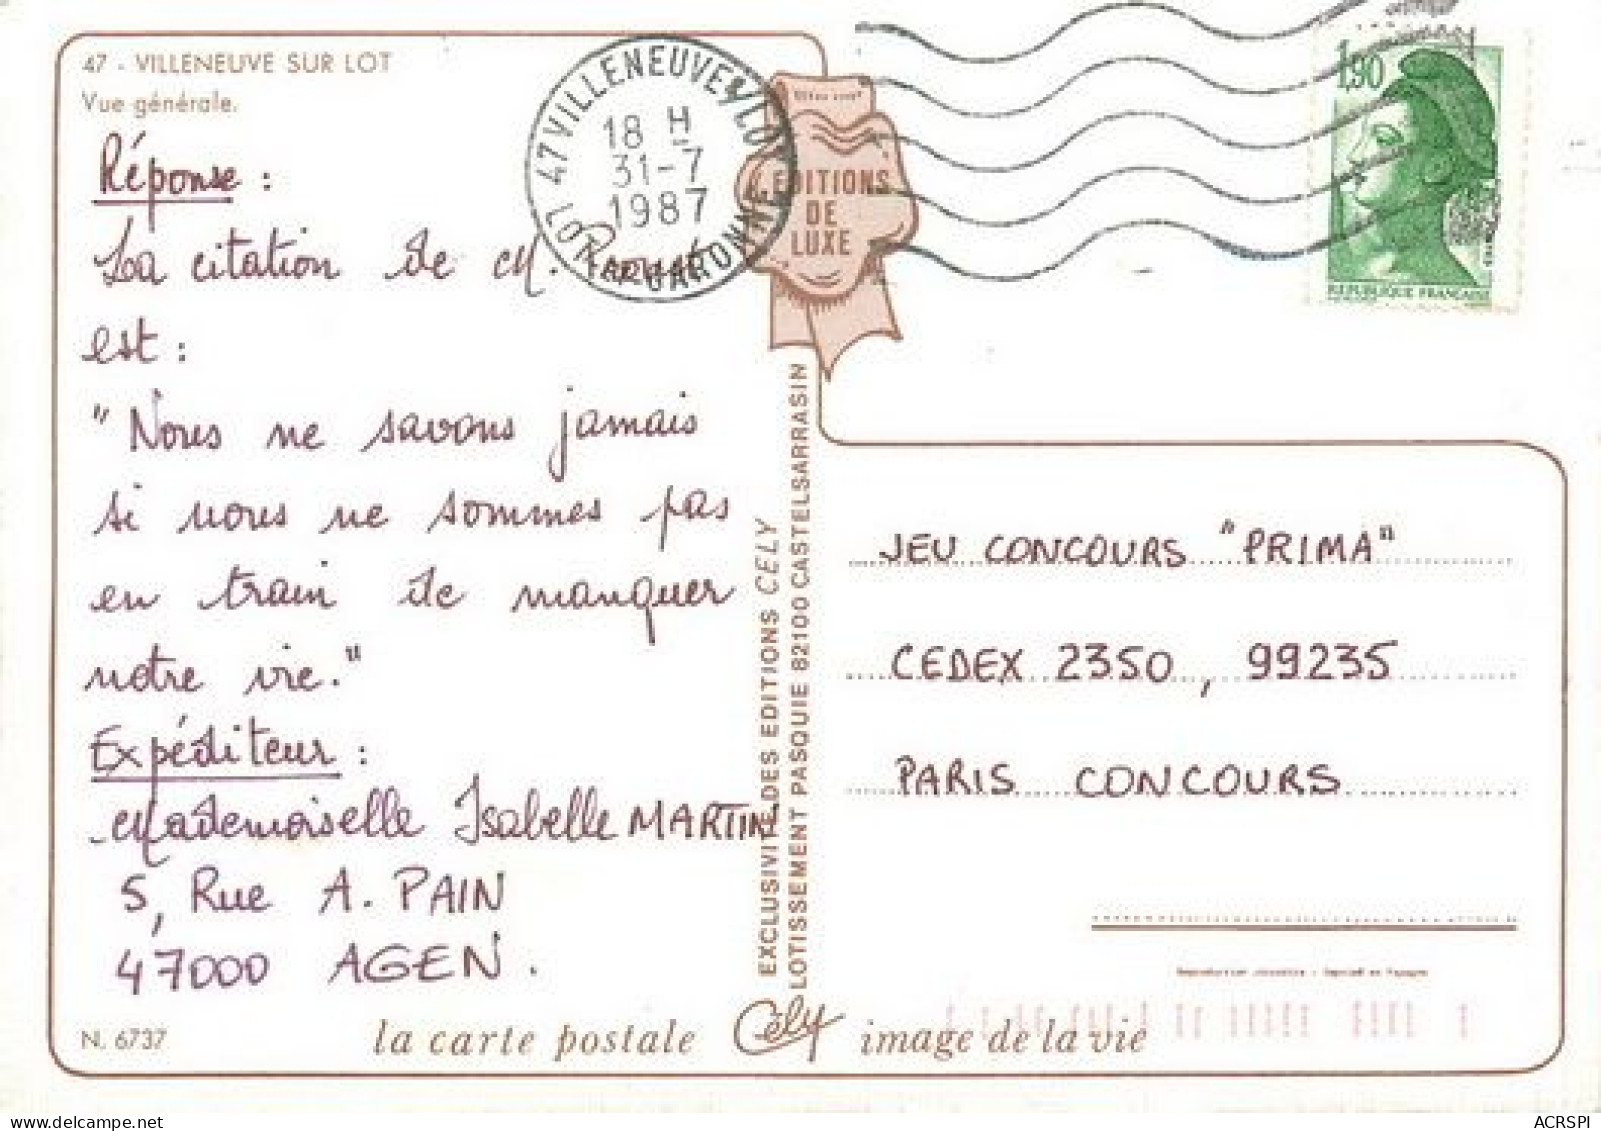 47 - VILLENEUVE SUR LOT
Vue générale.
Réponse :
La citation de M. Proust
est :
"Nous ne savons jamais
si nous ne sommes pas
en train de manquer
notre vie."
Expéditeur :
Mademoiselle Isabelle MARTIN
5, Rue A. PAIN
47000 AGEN.
N. 6737
47 VILLENEUVE S/LOT
18 H
31-7
1987
LOT ET GARONNE
EDITIONS
DE
LUXE
1,90
REPUBLIQUE FRANÇAISE
EXCLUSIVITE DES EDITIONS CELY
LOTISSEMENT PASQUIE 82100 CASTELSARRASIN
JEU CONCOURS "PRIMA"
CEDEX 2350, 99235
PARIS CONCOURS
la carte postale Cély image de la vie
ACRSPI